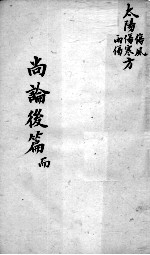 太陽傷寒方
傷風
兩傷
尚論後篇 而